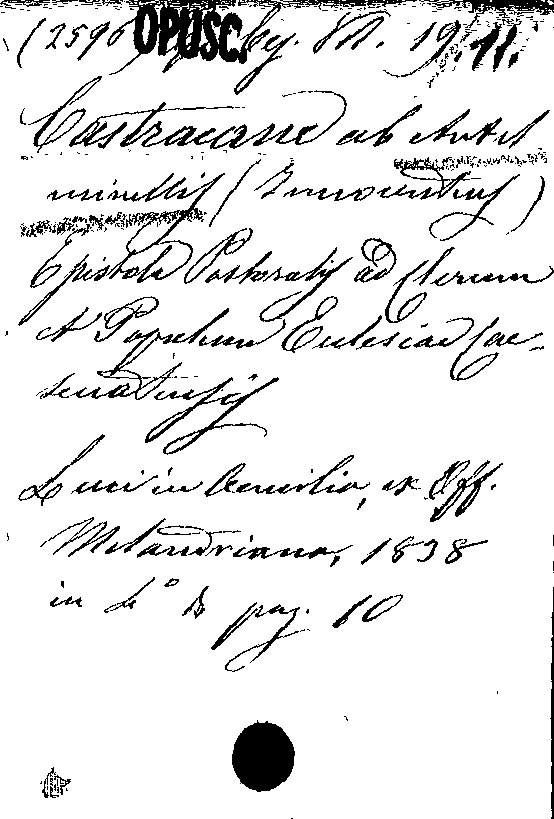 (2596) OPUSC. 19.11.
Castracane ab Antel
minellis (Innocentius)
Epistola Pastoralis ad Clerum
et Populum Ecclesiae Cae-
senatensis
Luci in Aemilia, ex Off.
Melandriana, 1838
in 4° di pag. 10